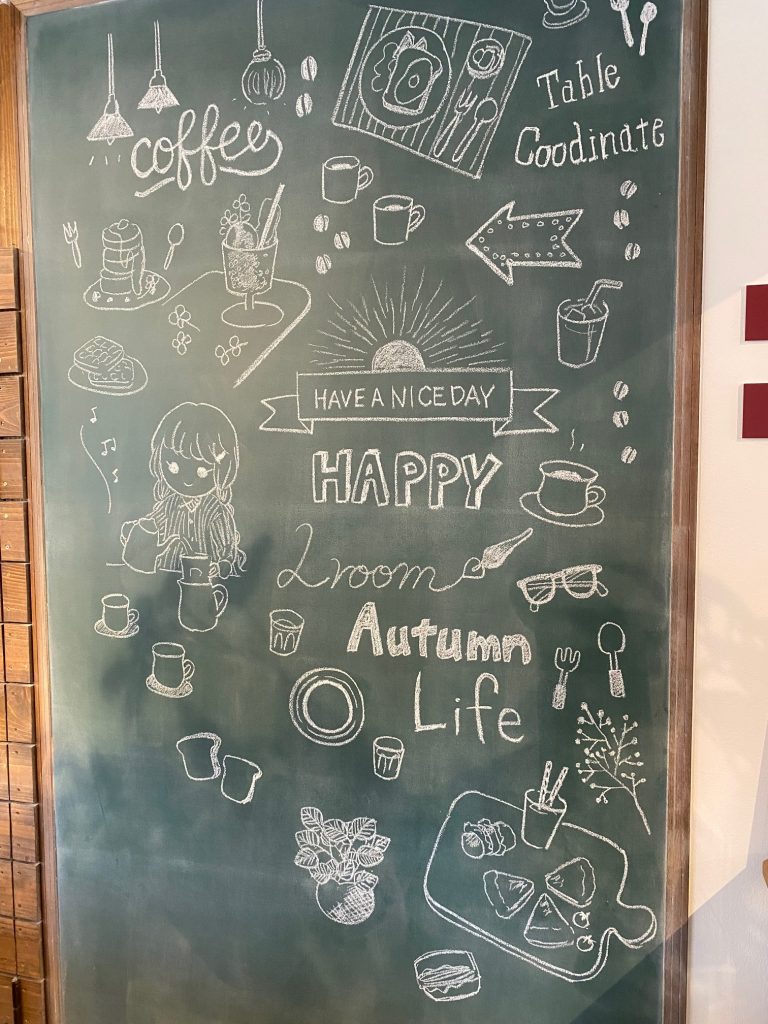 coffee
Table
Coodinate
HAVE A NICE DAY
HAPPY
2room
Autumn
Life